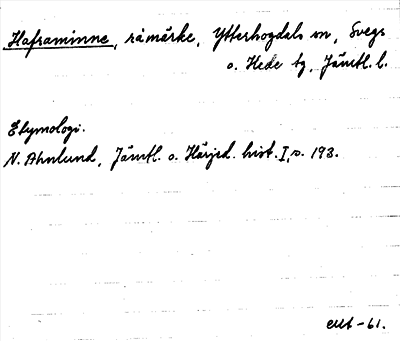 Haframinne, råmärke, Ytterhogdals sn, Svegs
o. Hede tg, Jämtl. l.
Etymologi.
N. Ahnlund, Jämtl. o. Härjed. hist. I, s. 193.
-61.